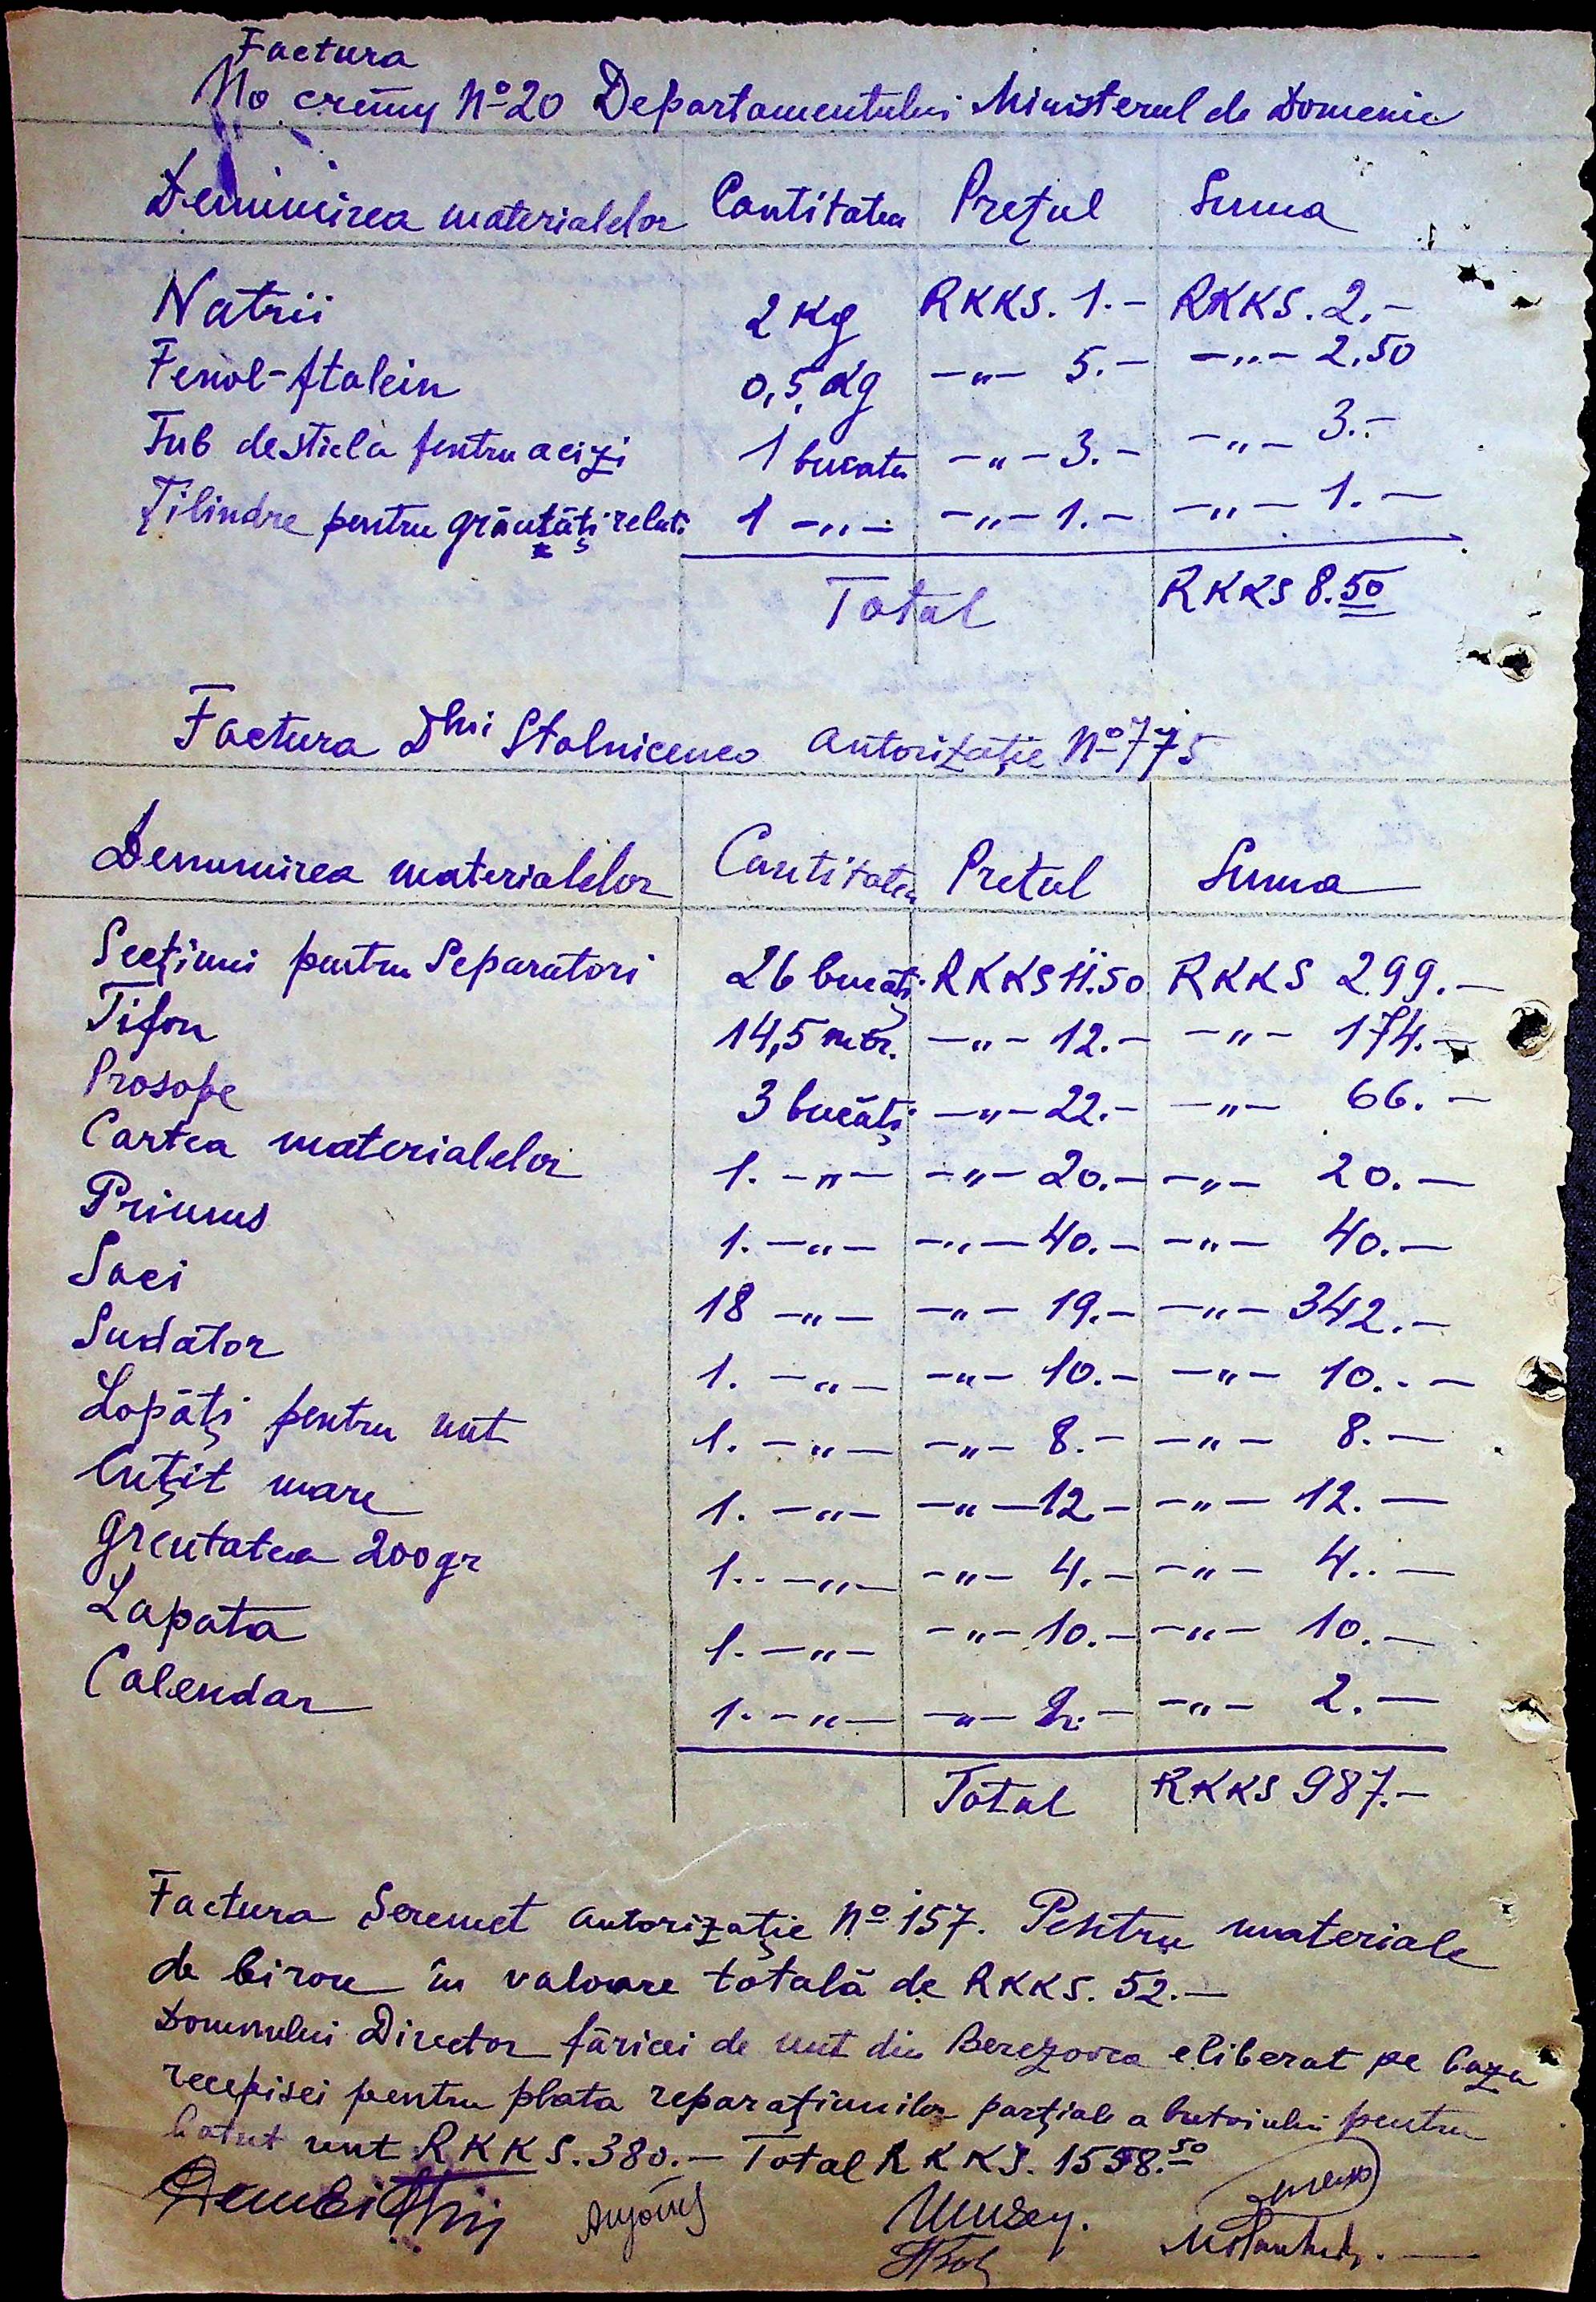 Factura
No crēmy Nº 20 Departamentului Ministerul de Domenii
Denumirea materialelor Cantitatea Prețul Suma
Natrii 2 Kg RKKS. 1.- RKKS. 2.-
Fenol-ftalein 0,5 Kg -„- 5.- -„- 2.50
Tub de sticla pentru acizi 1 bucata -„- 3.- -„- 3.-
Țilindre pentru grăutăți relat. 1 -„- -„- 1.- -„- 1.-
Total RKKS 8.50
Factura Dlui Stolnicenco autorizație Nº 775
Denumirea materialelor Cantitatea Prețul Suma
Secțiuni pentru Separatori 26 bucăți RKKS 11.50 RKKS 299.-
Tifon 14,5 mtr. -„- 12.- -„- 174.-
Prosope 3 bucăți -„- 22.- -„- 66.-
Cartea materialelor 1. -„- -„- 20.- -„- 20.-
Primus 1. -„- -„- 40.- -„- 40.-
Saci 18 -„- -„- 19.- -„- 342.-
Sudător 1. -„- -„- 10.- -„- 10.-
Lopăți pentru unt 1. -„- -„- 8.- -„- 8.-
Cuțit mare 1. -„- -„- 12.- -„- 12.-
Greutatea 200 gr 1. -„- -„- 4.- -„- 4.-
Lapata 1. -„- -„- 10.- -„- 10.-
Calendar 1. -„- -„- 2.- -„- 2.-
Total RKKS 987.-
Factura Seremet autorizație Nº 157. Pentru materiale
de birou în valoare totală de RKKS. 52.-
Domnului Director făricei de unt din Berezovca eliberat pe baza
recepisei pentru plata reparațiunilor parțiale a butoiului pentru
batut unt RKKS. 380.- Total RKKS. 1558.50